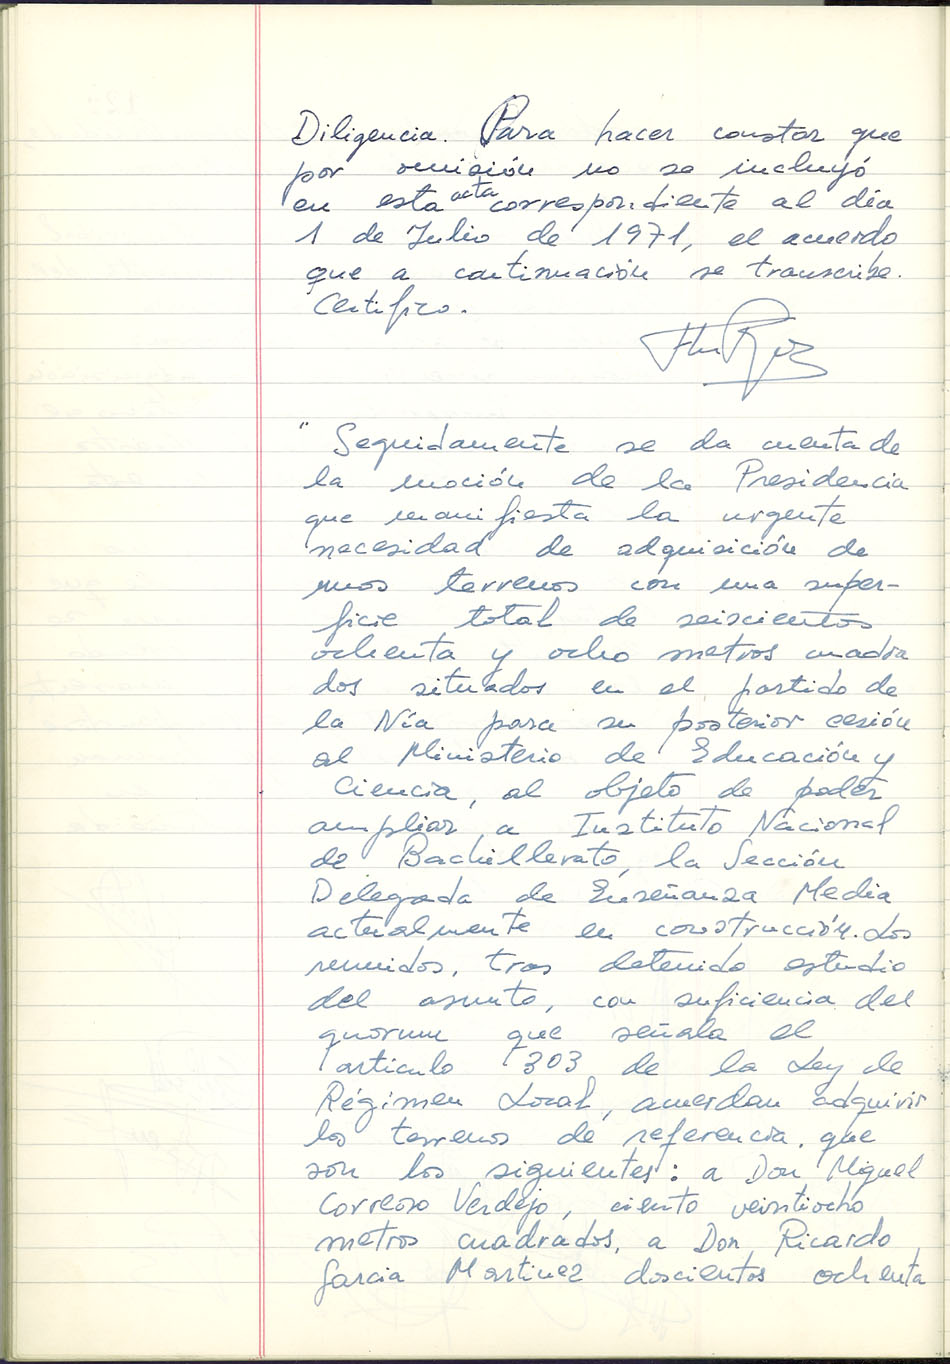 Diligencia. Para hacer constar que
por omisión no se incluyó
en esta acta correspondiente al día
1 de Julio de 1971, el acuerdo
que a continuación se transcribe.
Certifico.
" Seguidamente se da cuenta de
la moción de la Presidencia
que manifiesta la urgente
necesidad de adquisición de
unos terrenos con una super-
ficie total de seiscientos
ochenta y ocho metros cuadra
dos situados en el partido de
la Nía para su posterior cesión
al Ministerio de Educación y
Ciencia, al objeto de poder
ampliar, a Instituto Nacional
de Bachillerato, la Sección
Delegada de Enseñanza Media
actualmente en construcción. Los
reunidos, tras detenido estudio
del asunto, con suficiencia del
quorum que señala el
articulo 303 de la Ley de
Régimen Local, acuerdan adquirir
los terrenos de referencia, que
son los siguientes: a Don Miguel
Correoso Verdejo, ciento veintiocho
metros cuadrados, a Don Ricardo
Garcia Martinez doscientos ochenta